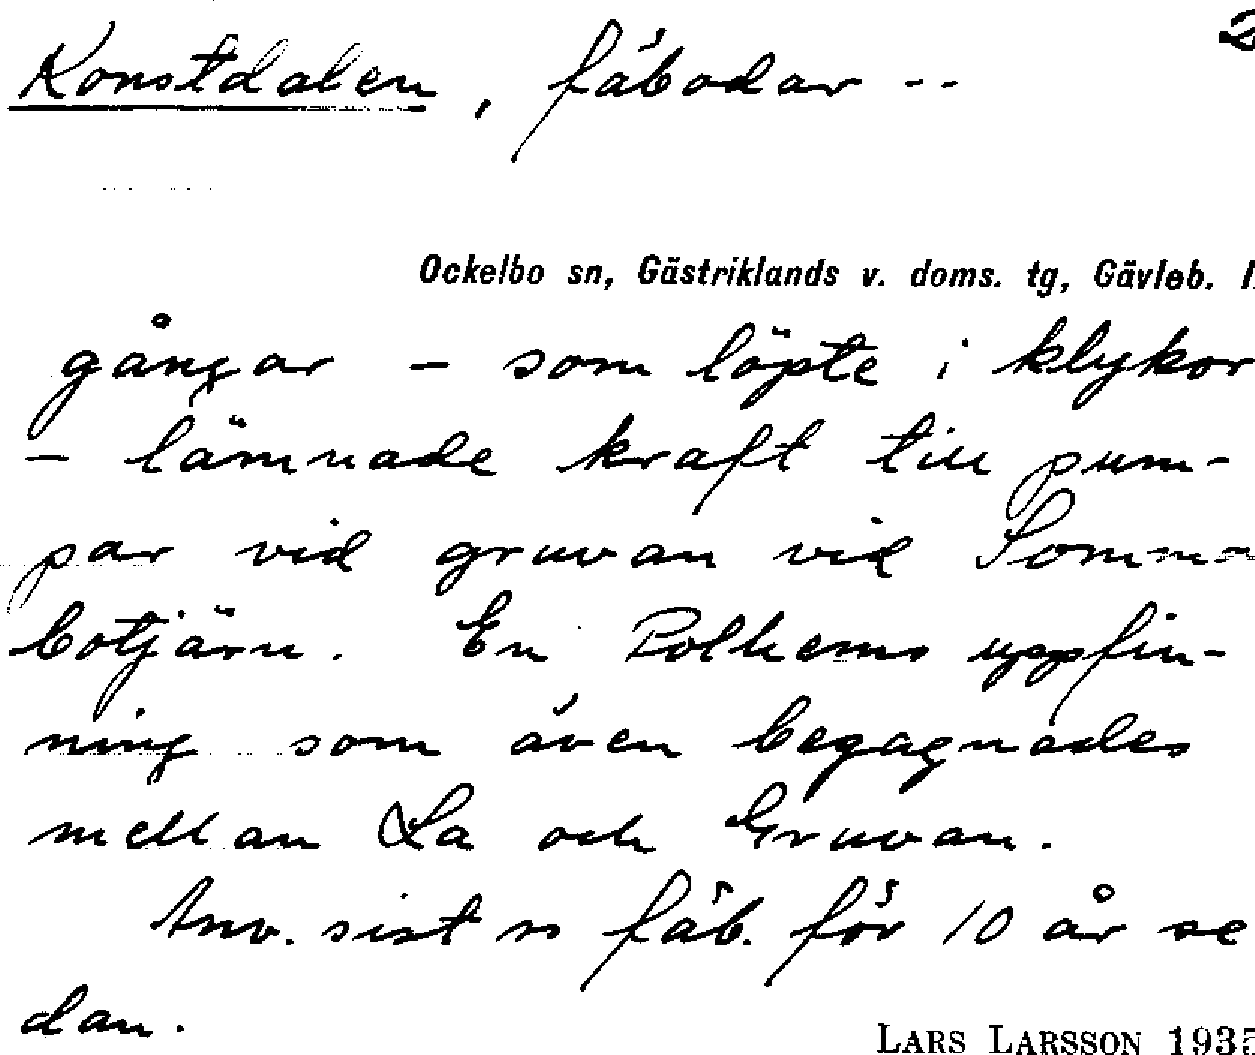 Konstdalen, fäbodar -- 2
Ockelbo sn, Gästriklands v. doms. tg, Gävleb. l.
gångar – som löpte i klykor
– lämnade kraft till pum-
par vid gruvan vid Somm-
botjärn. En Polhems uppfin-
ning som även begagnades
mellan La och Gruvan.
Anv. sist ss fäb. för 10 år se
dan.
LARS LARSSON 1935